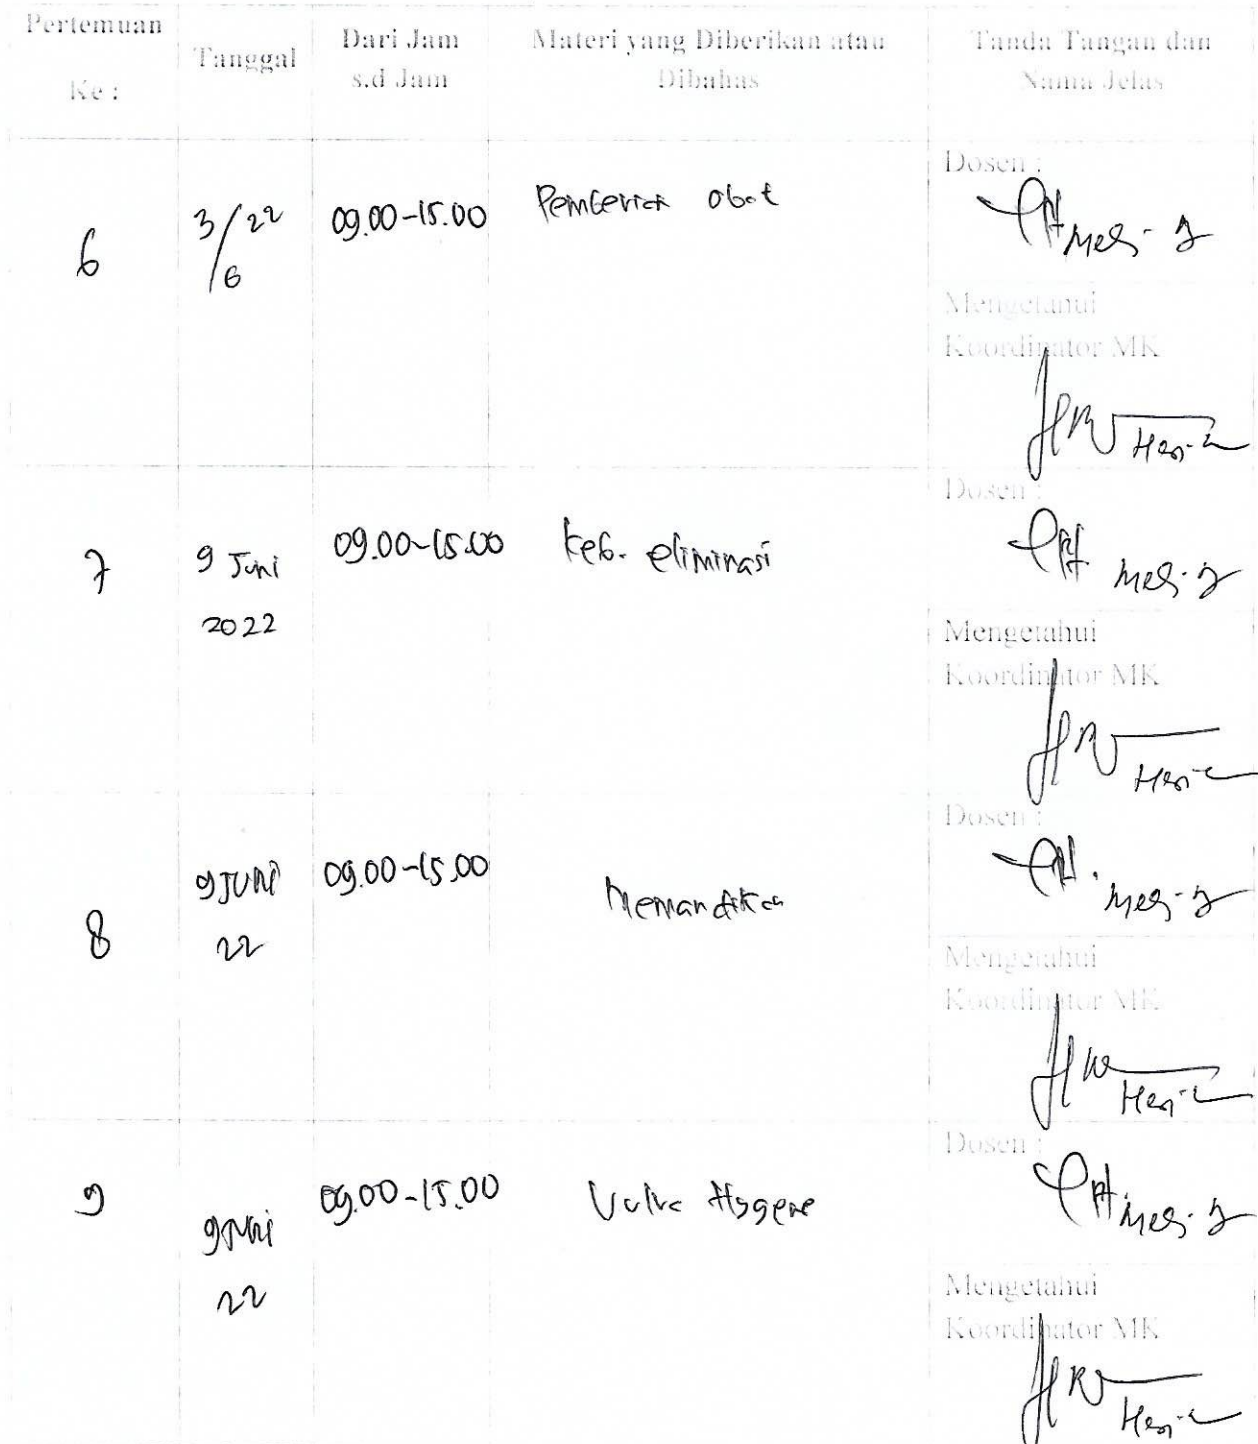 Pertemuan
Ke :
Tanggal
Dari Jam
s.d Jam
Materi yang Diberikan atau
Dibahas
Tanda Tangan dan
Nama Jelas
6
3/22
/6
09.00-15.00
Pemberian obat
Dosen :
Mengetahui
Koordinator MK
7
9 Juni
2022
09.00-15.00
Keb. eliminasi
Dosen :
Mengetahui
Koordinator MK
8
9 JUNI
22
09.00-15.00
Memandikan
Dosen :
Mengetahui
Koordinator MK
9
9 Juni
22
09.00-15.00
Vulva Hygene
Dosen :
Mengetahui
Koordinator MK